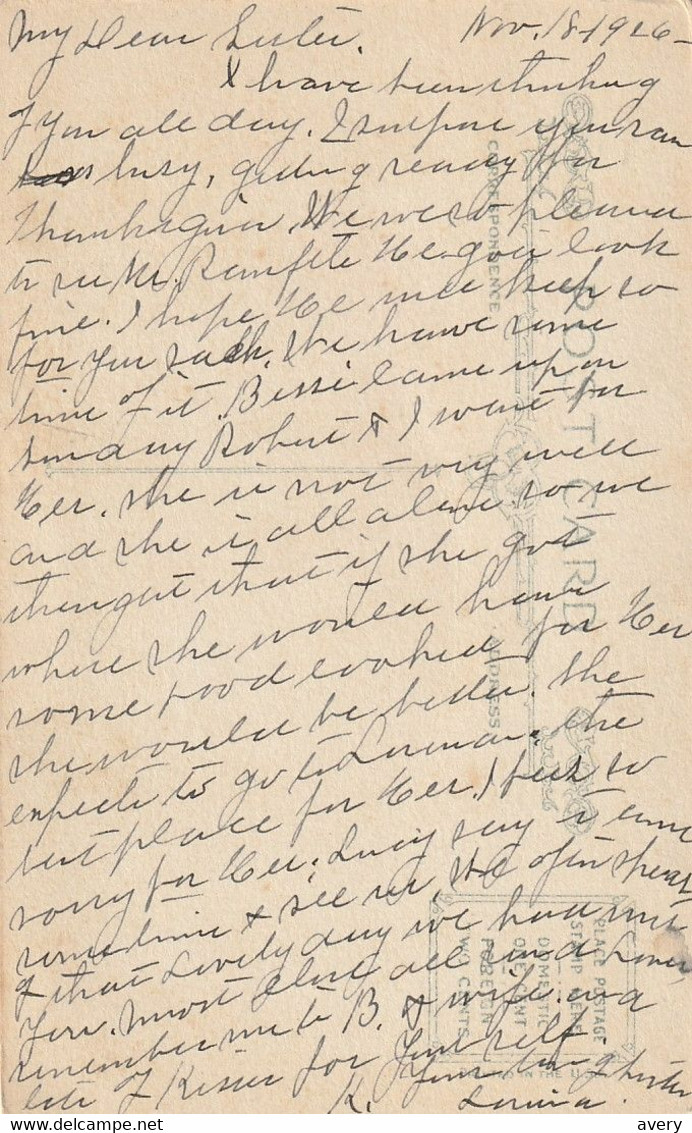 My Dear Sister. Nov. 18-1926-
I have been thinking
of you all day. I suppose you are
busy, geting ready for
Thanksgiven. We were so pleased
to see Mr. He. you look
fine. I hope He nice keep so
for you sake. We have some
time of it. Bessie came up on
Sunday Robert & I went for
Her. she is not very well
and she is all alone. so we
thought that if she got
where she would have
some food cooked for Her
she would be better. She
expects to go to. the
best place for Her. I feel so
sorry for Her. Lucy say to come
some time & see us. We often speak
of that Lovely day we had with
You. Most Love all and
remember me to B. & wife. and
lots of Kisses for Yourself.
K. Your loving Sister
CORRESPONDENCE
POST CARD
ADDRESS
PLACE POSTAGE
STAMP HERE
DOMESTIC
ONE CENT
FOREIGN
TWO CENTS
avery